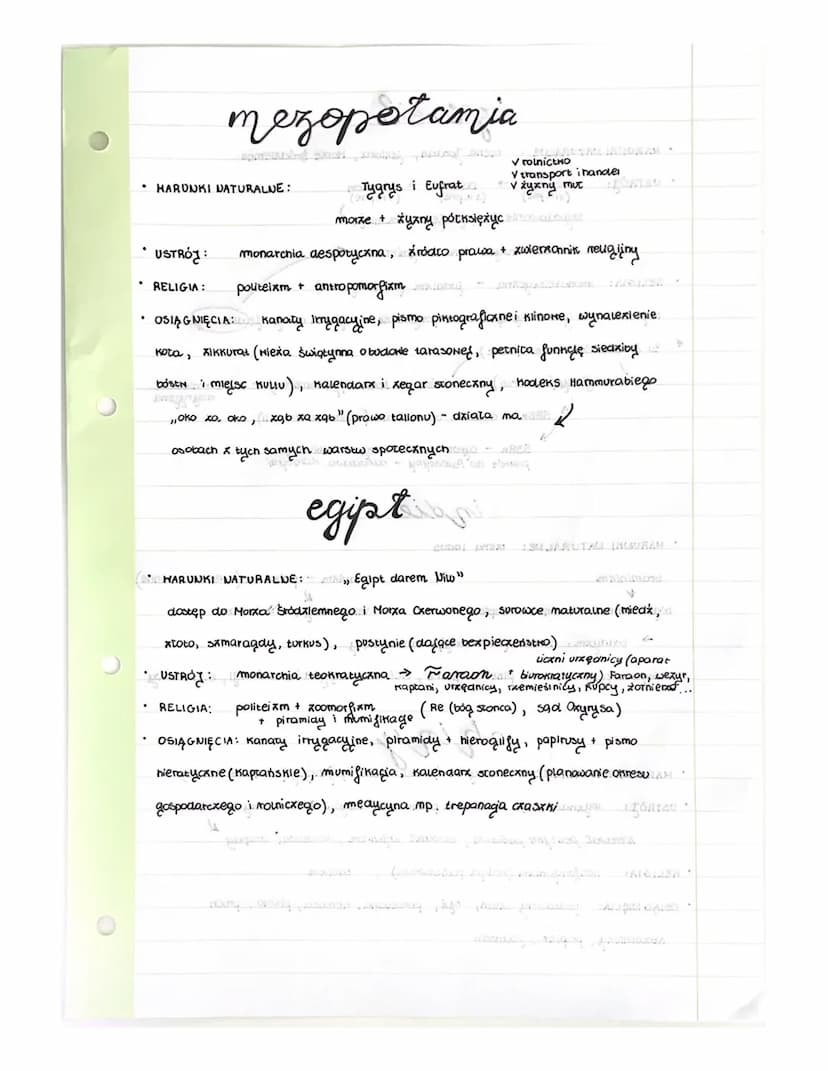 mezopotamia
• WARUNKI NATURALNE: Tygrys i Eufrat
√ rolnictwo
√ transport i handel
√ żyzny muł
morze + żyzny półksiężyc
• USTRÓJ: monarchia despotyczna, źródło prawa + zwierzchnik religijny
• RELIGIA: politeizm + antropomorfizm
• OSIĄGNIĘCIA: kanały irrygacyjne, pismo piktograficzne i klinowe, wynalezienie
koła, zikkurat (wieża świątynna o budowie tarasowej, pełniła funkcję siedziby
bóstw i miejsc kultu), kalendarz i zegar słoneczny, kodeks Hammurabiego
„oko za oko, ząb za ząb" (prawo talionu) - działa na
osobach z tych samych warstw społecznych
egipt
• WARUNKI NATURALNE: „Egipt darem Nilu"
dostęp do Morza Śródziemnego i Morza Czerwonego, surowce naturalne (miedź,
złoto, szmaragdy, turkus), pustynie (dające bezpieczeństwo)
• USTRÓJ: monarchia teokratyczna → Faraon + liczni urzędnicy (aparat
biurokratyczny) Faraon, wezyr,
kapłani, urzędnicy, rzemieślnicy, kupcy, żołnierze...
• RELIGIA: politeizm + zoomorfizm (Re (bóg słońca), sąd Ozyrysa)
+ piramidy i mumifikacje
• OSIĄGNIĘCIA: kanały irrygacyjne, piramidy + hieroglify, papirusy + pismo
hieratyczne (kapłańskie), mumifikacja, kalendarz słoneczny (planowanie okresu
gospodarczego i rolniczego), medycyna np. trepanacja czaszki